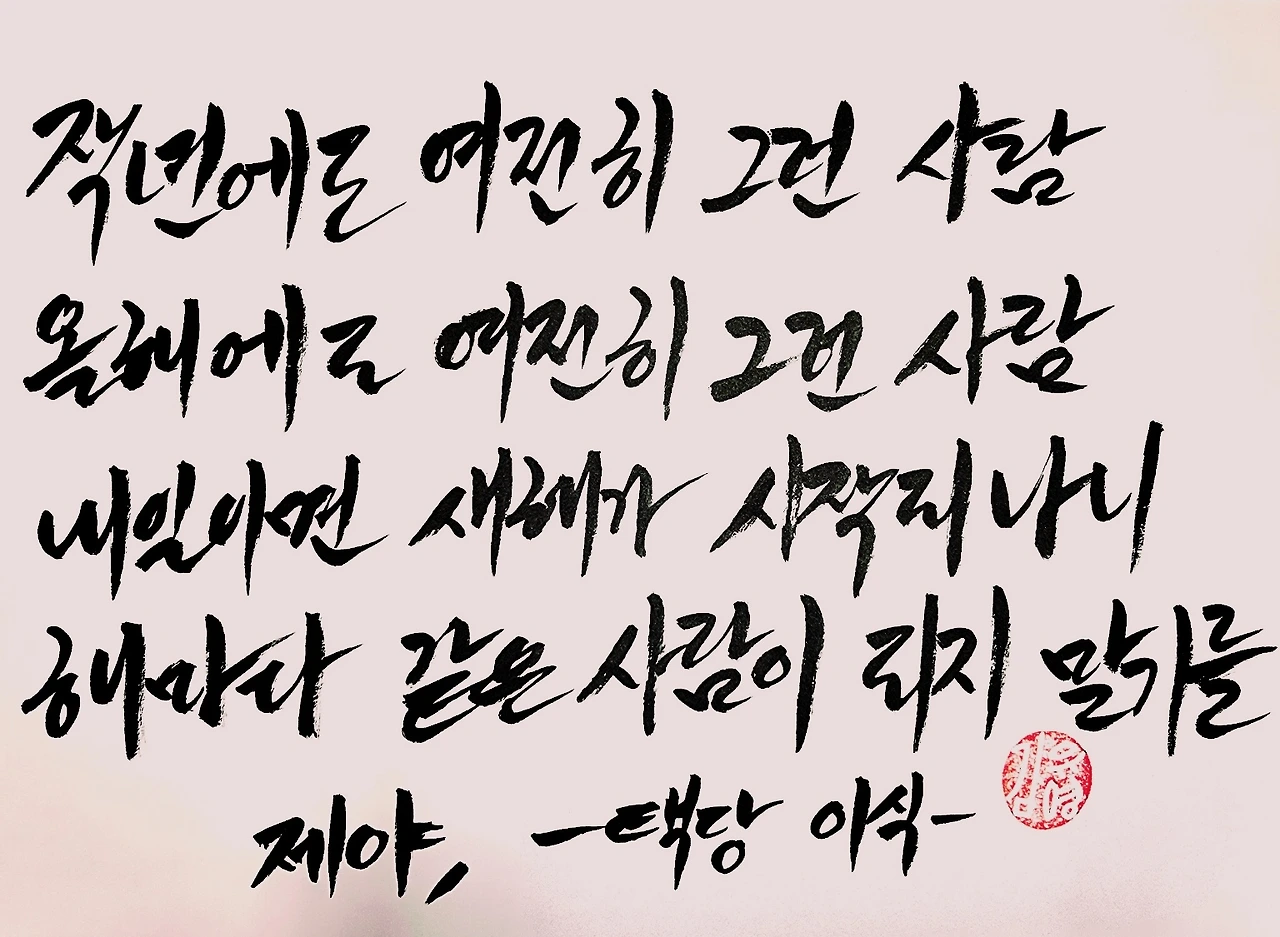 작년에도 여전히 그런 사람
올해에도 여전히 그런 사람
내일이면 새해가 시작되나니
해마다 같은 사람이 되지 말기를
제야, -택당 이식-